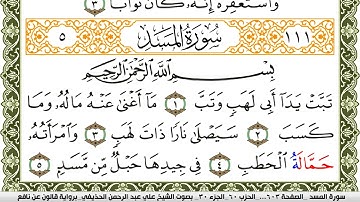 وَاسْتَغْفِرْهُ إِنَّهُۥ كَانَ تَوَّابًا ٣
١١١ سُورَةُ الْمَسَدِ ٥
بِسْمِ اللَّهِ الرَّحْمَٰنِ الرَّحِيمِ
تَبَّتْ يَدَآ أَبِي لَهَبٍ وَتَبَّ ١ مَآ أَغْنَىٰ عَنْهُ مَالُهُۥ وَمَا
كَسَبَ ٢ سَيَصْلَىٰ نَارًا ذَاتَ لَهَبٍ ٣ وَامْرَأَتُهُۥ
حَمَّالَةُ الْحَطَبِ ٤ فِي جِيدِهَا حَبْلٌ مِّن مَّسَدٍ ٥
سورة المسد _الصفحة ٦٠٣... الحزب ٦٠_الجزء ٣٠_ بصوت الشيخ علي عبد الرحمن الحذيفي_برواية قالون عن نافع